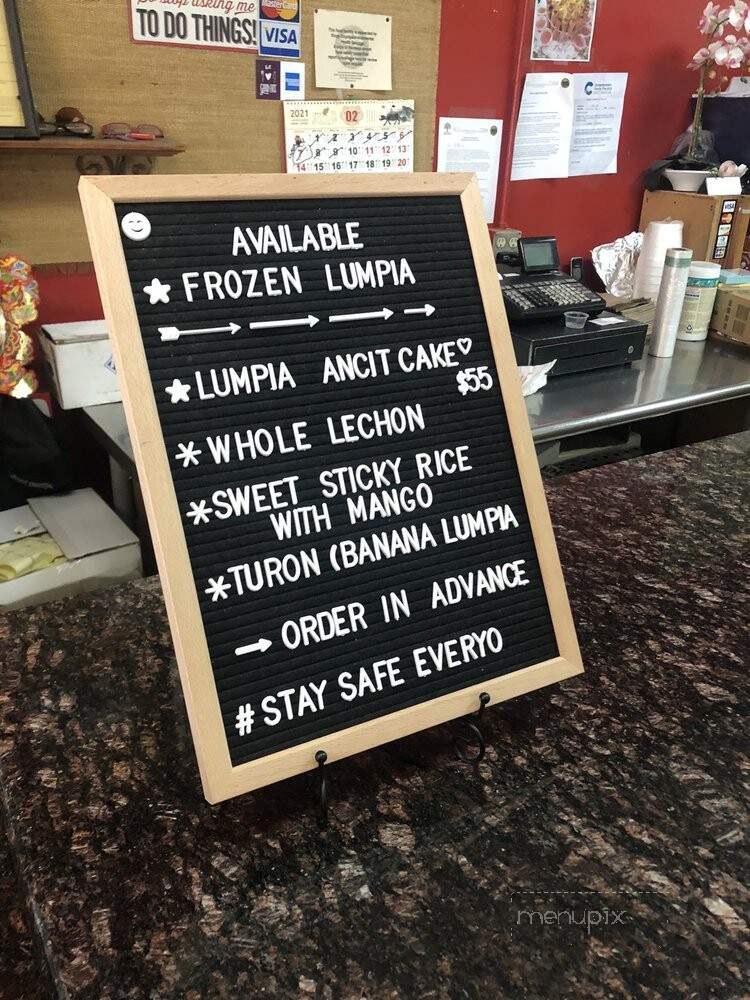 so stop asking me
TO DO THINGS!
MasterCard
VISA
2021
02
1 2 3 4 5 6
7 8 9 10 11 12 13
14 15 16 17 18 19 20
VISA
AVAILABLE
FROZEN LUMPIA
LUMPIA ANCIT CAKE
$55
WHOLE LECHON
*SWEET STICKY RICE
WITH MANGO
*TURON (BANANA LUMPIA
ORDER IN ADVANCE
#STAY SAFE EVERYO
menupix